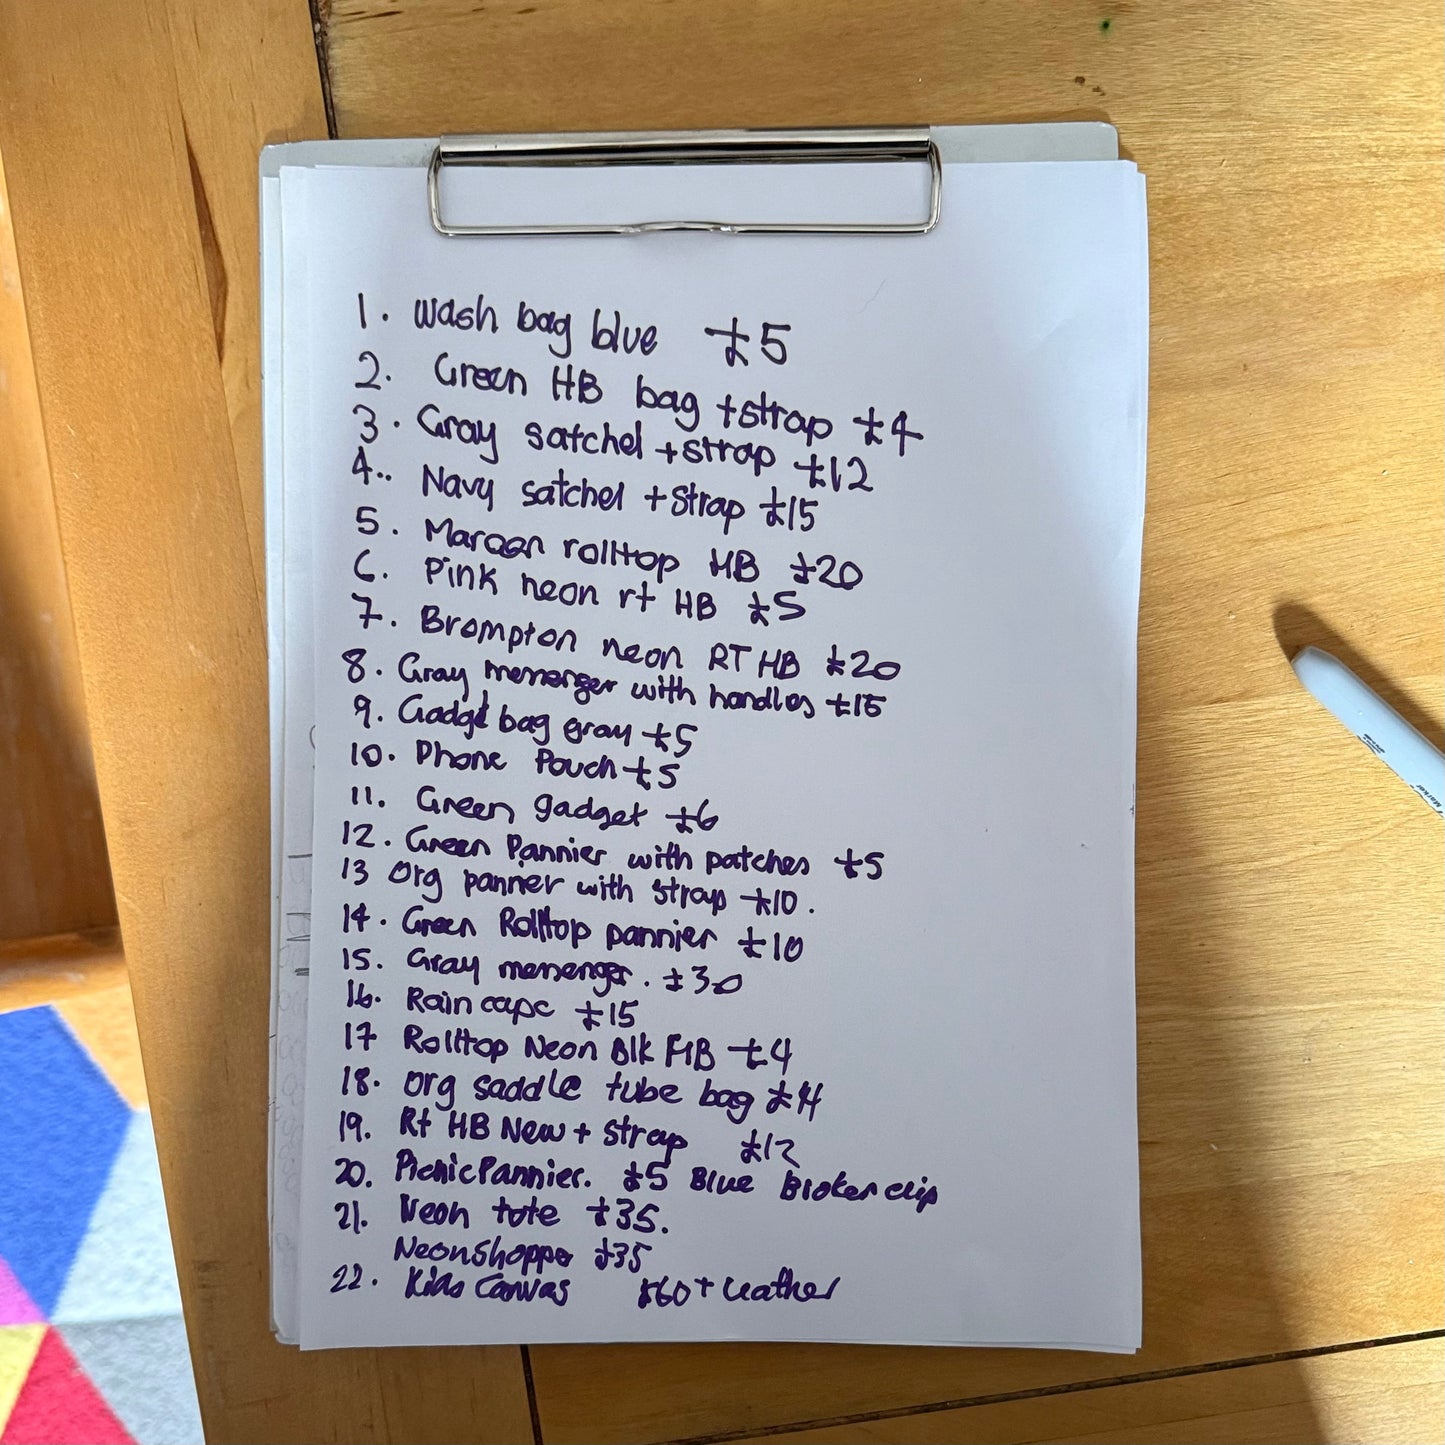 1. Wash bag blue £5
2. Green HB bag + strap £4
3. Gray satchel + strap £12
4.. Navy satchel + strap £15
5. Maroon rolltop HB £20
6. Pink neon rt HB £5
7. Brompton neon RT HB £20
8. Gray messenger with handles £15
9. Gadget bag gray £5
10. Phone Pouch £5
11. Green gadget £6
12. Green Pannier with patches £5
13 Org panner with strap £10.
14. Green Rolltop pannier £10
15. Gray messenger. £30
16. Rain cape £15
17 Rolltop Neon Blk HB £4
18. Org saddle tube bag £4
19. Rt HB New + strap £12
20. Picnic Pannier. £5 Blue Broken clip
21. Neon tote £35.
Neon Shopper £35
22. Kids Canvas £60 + Leather
Marker